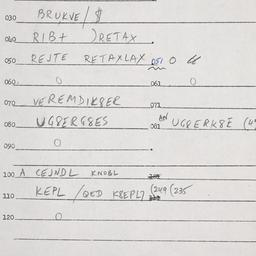 030 BRUKVE / $
040 RIB+ )RETAX
050 REJTE RETAXLAX 051 0
060 0 061 0
070 VEREMDIK8ER 071
080 UG8ERG8ES 081 AN UG8ERK8E
090 0
100 A CEJNDL KNOBL
110 KEPL / QED K8EPL7 (249 (235
120 0